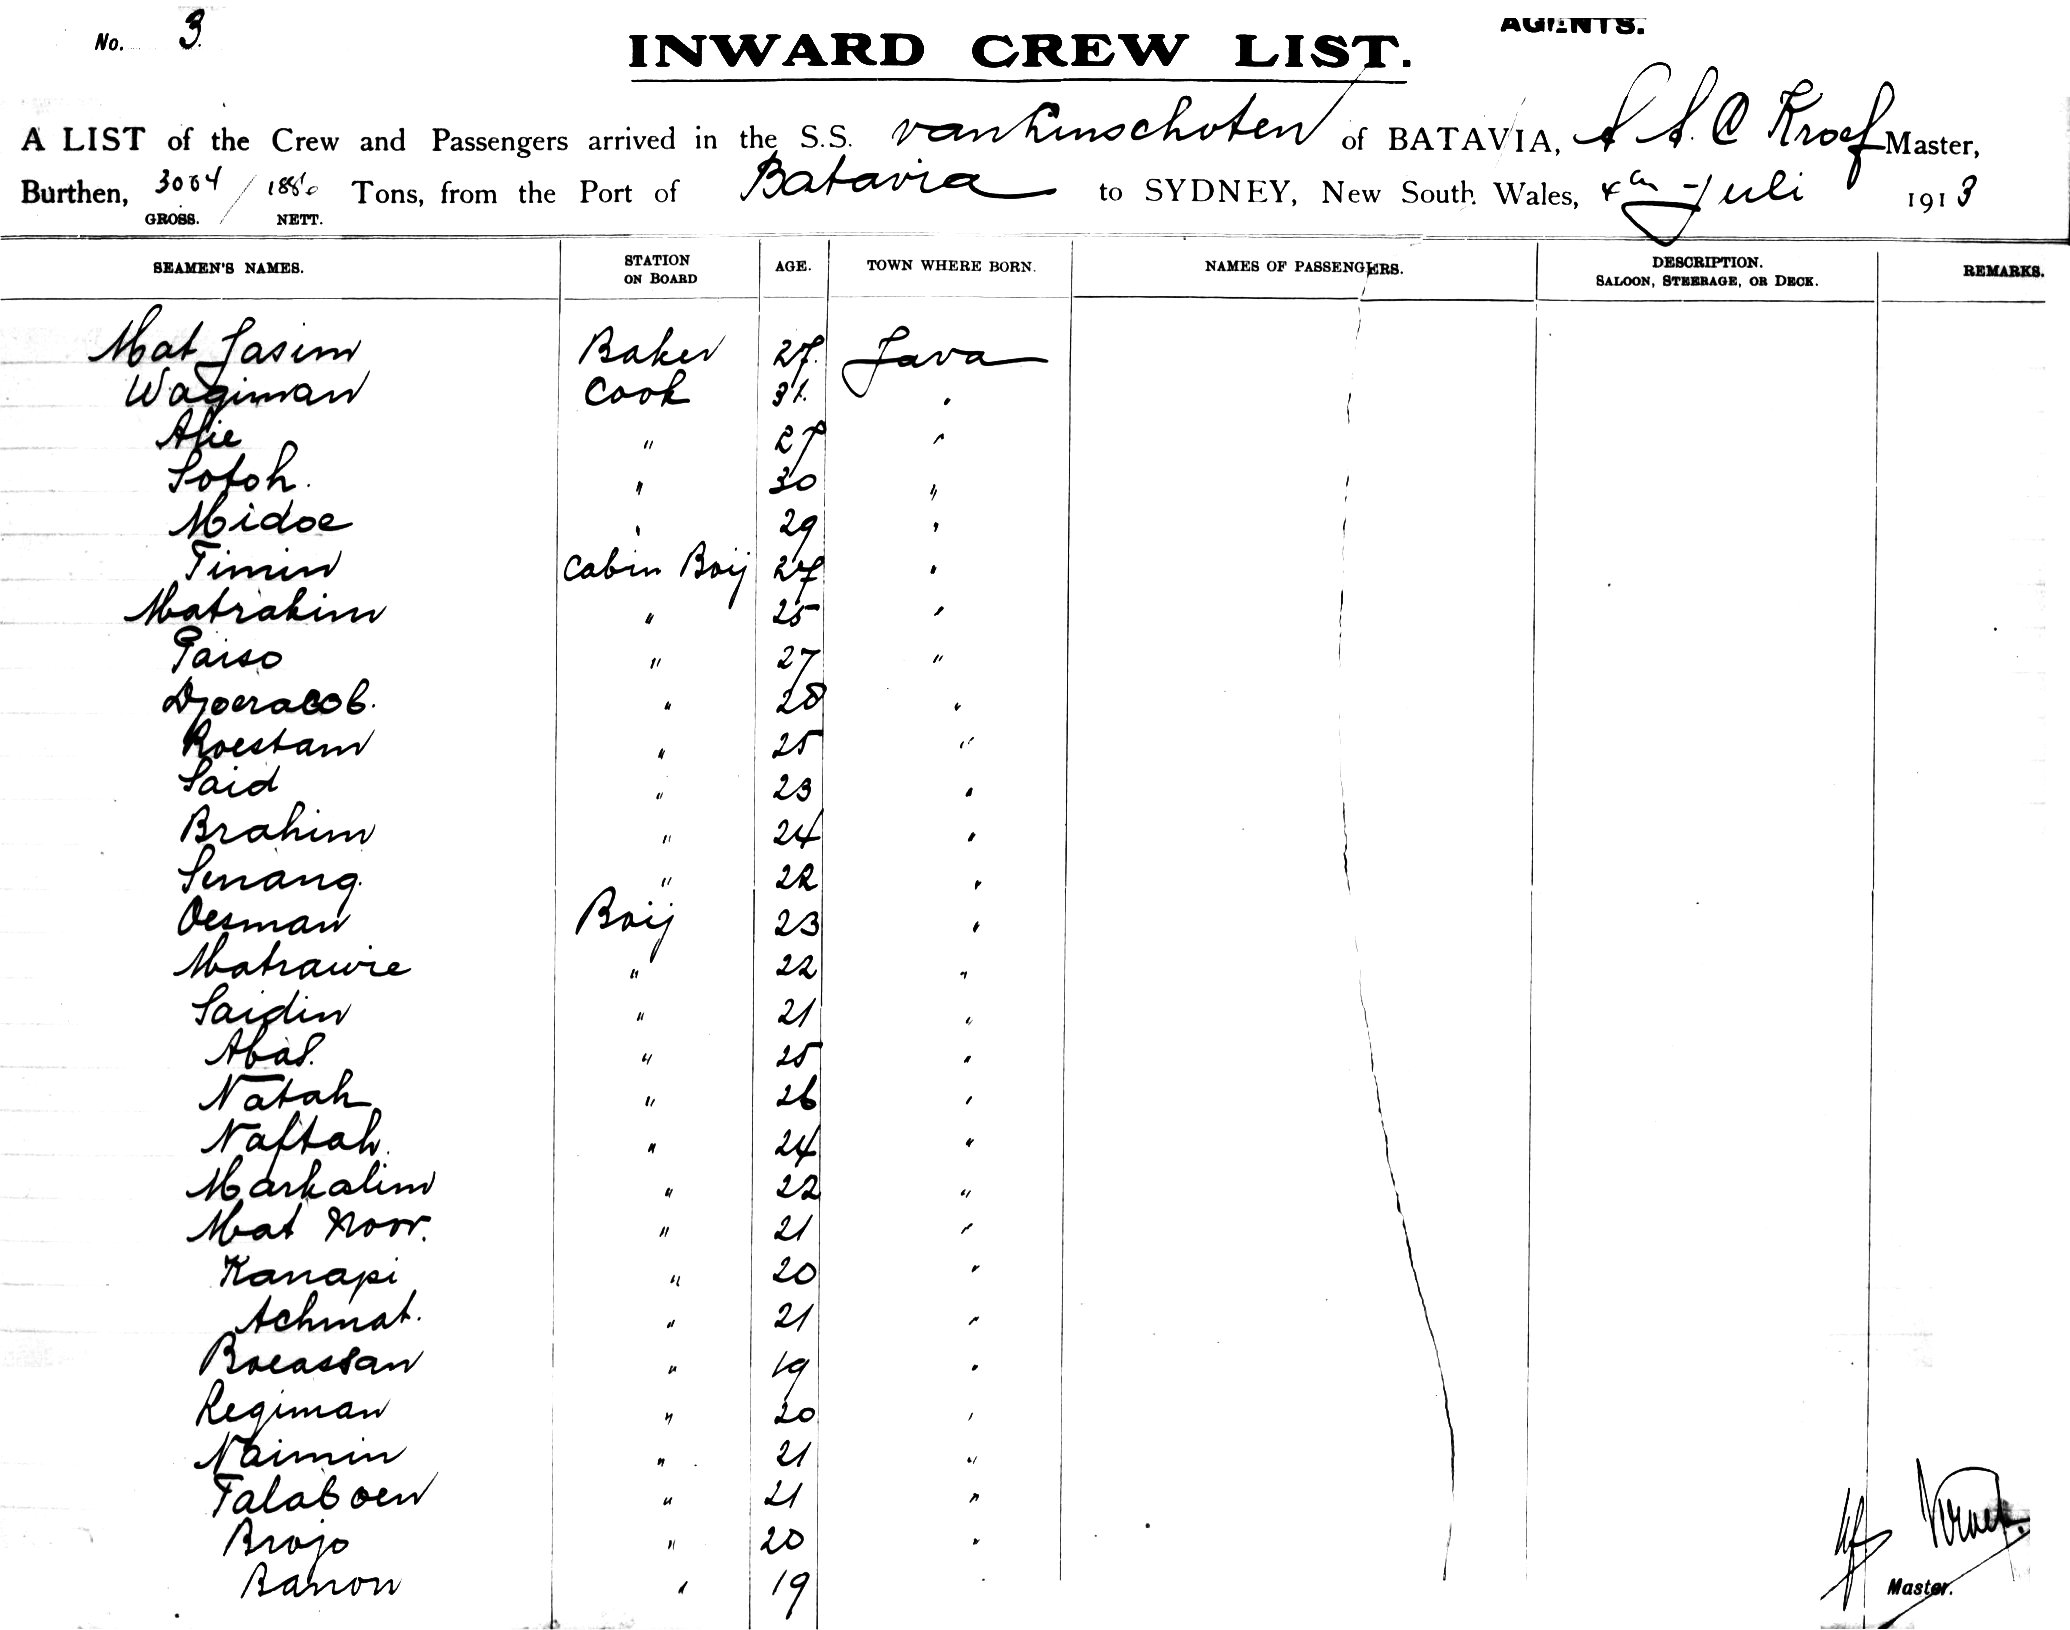 No. 3.
AGENTS.
INWARD CREW LIST.
A LIST of the Crew and Passengers arrived in the S.S. van Linschoten of BATAVIA, A. A. C Kroef Master,
Burthen, 3064 / Tons, from the Port of Batavia to SYDNEY, New South Wales, 4th Juli 1913
GROSS. NETT.
SEAMEN'S NAMES. STATION ON BOARD AGE. TOWN WHERE BORN. NAMES OF PASSENGERS. DESCRIPTION. SALOON, STEERAGE, OR DECK. REMARKS.
Mat Jasim Baker 27. Java
Wagiman Cook 31. "
Alie " 27 "
Sotoh. " 30 "
Midoe " 29 "
Timin Cabin Boij 27 "
Matrakim " 25 "
Paiso " 27 "
Djoeracob. " 28 "
Roestam " 25 "
Said " 23 "
Brahim " 24 "
Senang. " 22 "
Oesman Boij 23 "
Matrawie " 22 "
Saidin " 21 "
Abas. " 25 "
Natah " 26 "
Naftah. " 24 "
Markalim " 22 "
Mat Noor. " 21 "
Kanapi " 20 "
Achmat. " 21 "
Boeassan " 19 "
Regiman " 20 "
Naimin " 21 "
Talaboen " 21 "
Brojo " 20 "
Banon " 19
Kroef.
Master.